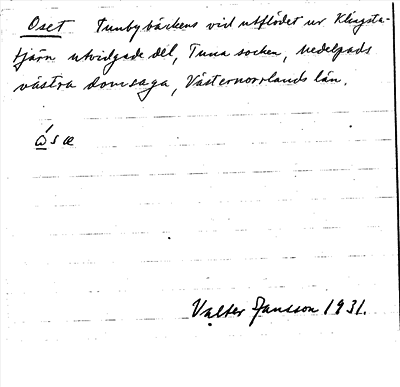 Oset Tunbybäckens vid utflödet ur Klingsta-
tjärn utvidgade del, Tuna socken, Medelpads
västra domsaga, Västernorrlands län.
ⱺ́sæ
Valter Jansson 1931.